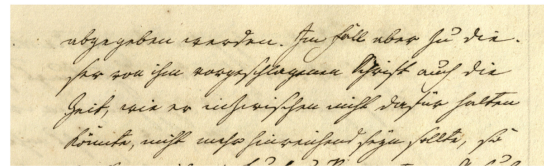 abgegeben werden. Im Fall aber zu die-
ser von ihm vorgeschlagenen Schrift auch die
Zeit, wie er inzwischen nicht dafür halten
könnte, nicht mehr hinreichend seyn sollte, so